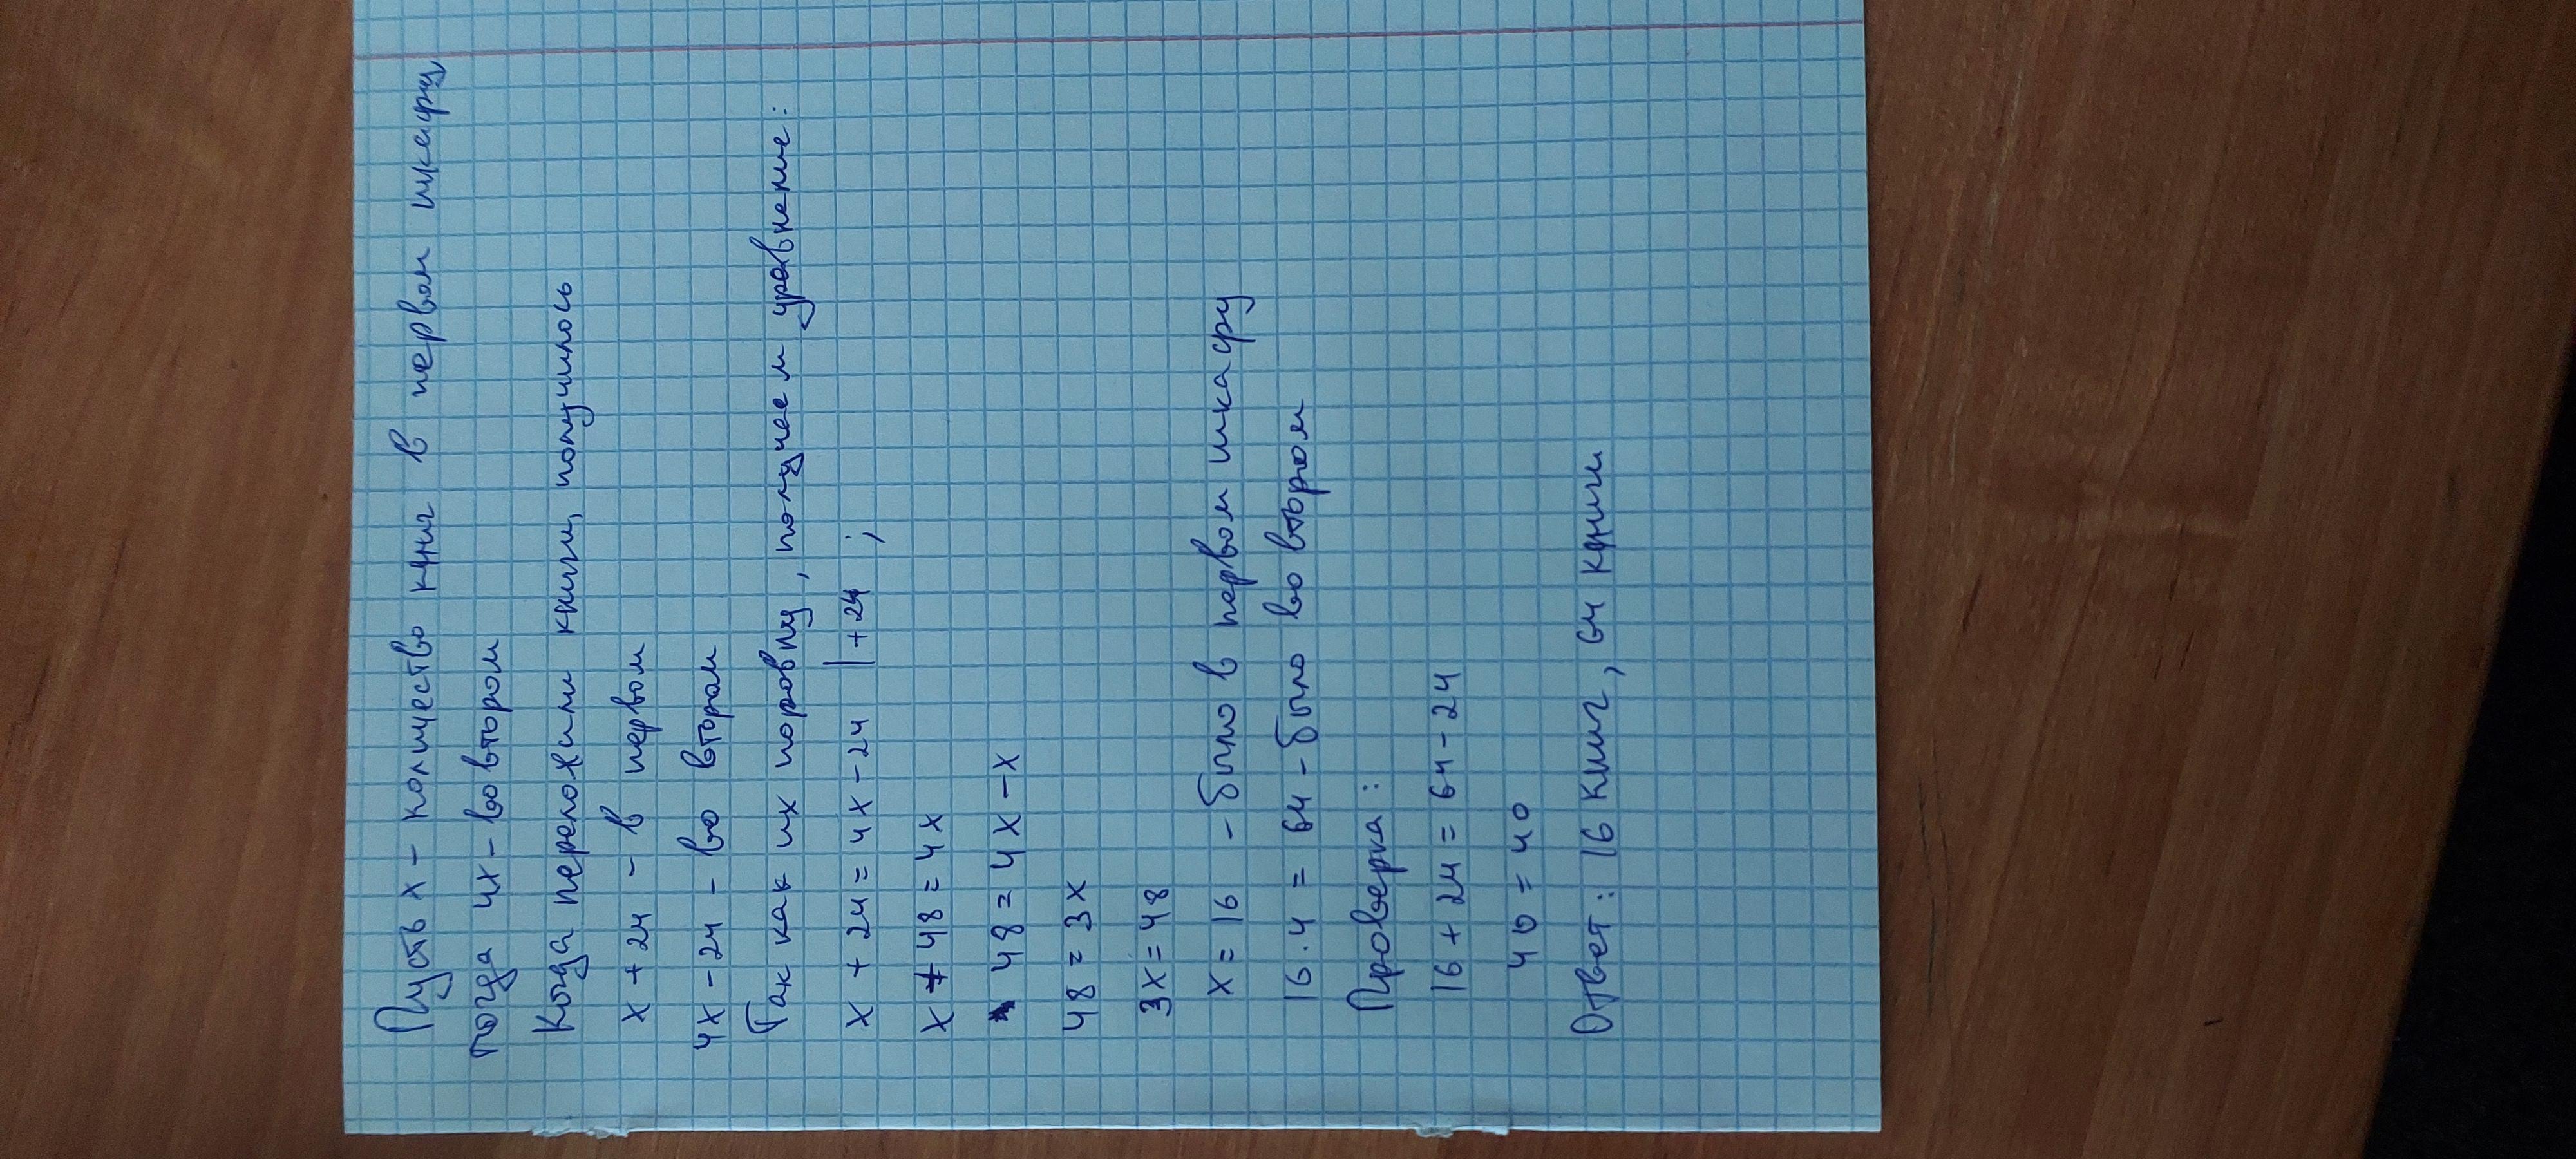 Пусть x - количество книг в первом шкафу
тогда 4x - во втором
Когда переложили книги, получилось
x + 24 - в первом
4x - 24 - во втором
Так как их поровну, получаем уравнение:
x + 24 = 4x - 24 | + 24 ;
x + 48 = 4x
48 = 4x - x
48 = 3x
3x = 48
x = 16 - было в первом шкафу
16 · 4 = 64 - было во втором
Проверка:
16 + 24 = 64 - 24
40 = 40
Ответ: 16 книг, 64 книги